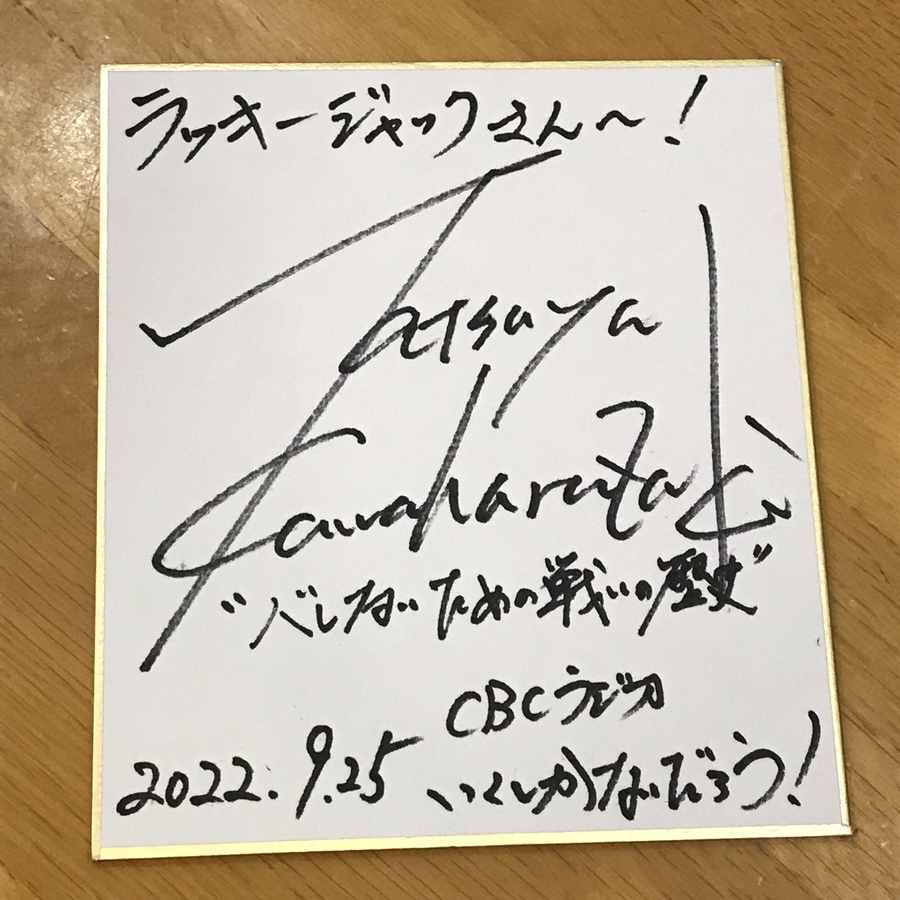 ラッキージャックさん〜!
Tatsuya
Kawaharazaki
"バしないための戦いの歴史"
CBCラジオ
2022.9.25 いくしかないだろう!